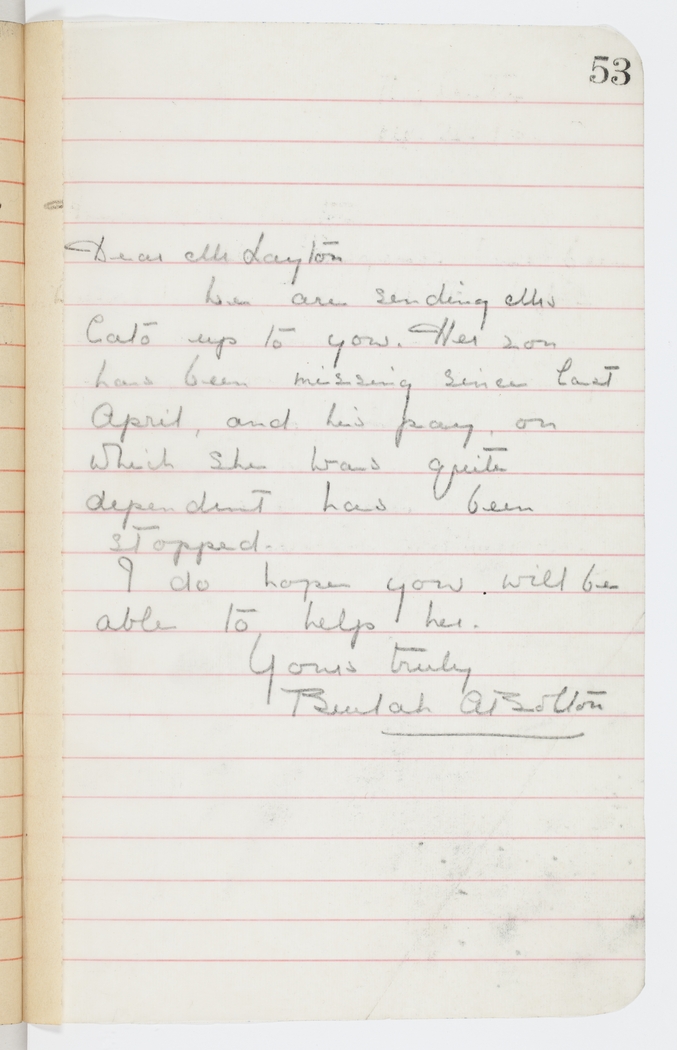 53
Dear Mr Layton
We are sending Mrs
Cato up to you. Her son
has been missing since last
April, and his pay, on
which she was quite
dependent has been
stopped.
I do hope you will be
able to help her.
Yours truly
Beulah A Bolton